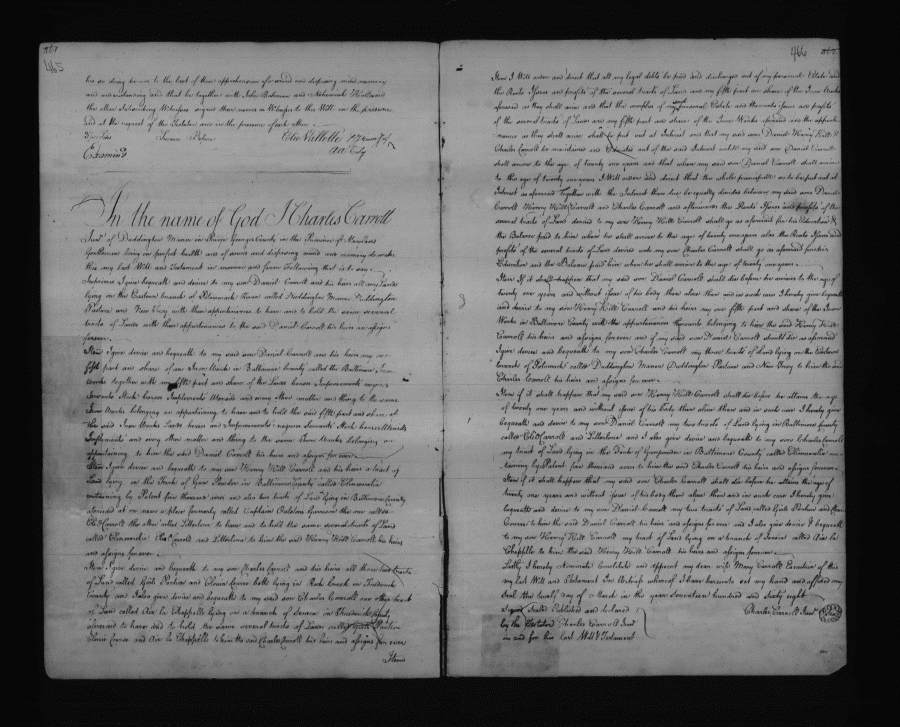 465
his so doing he was to the best of their apprehension of sound and disposing mind memory
and understanding and that he together with John Bateman and Nehemiah
the other Subscribing Witnesses signed their names as Witness to this Will in the presence
and at the request of the Testator and in the presence of each other
Elie Vallette
Examined
In the name of God I Charles Carroll
Junr of Duddington Manor in Prince Georges County in the Province of Maryland
Gentleman being in perfect health and of sound and disposing mind and memory do make
this my last Will and Testament in manner and form Following that is to say
Imprimis I give bequeath and devise to my son Daniel Carroll and his heirs all my Lands
lying on the Eastern branch of Potowmack River called Duddington Manor Duddington
Pasture and New Troy with their appurtenances to have and to hold the same several
tracts of Land with their appurtenances to the said Daniel Carroll his heirs and assigns
forever
Item I give devise and bequeath to my said son Daniel Carroll and his heirs my one
fifth part and share of an Iron Work in Baltimore County called the Baltimore Iron
Works together with my fifth part and share of the Lands houses Improvements negroes
Servants Stock horses Implements Utensils and every other matter and thing to the same
Iron Works belonging or appertaining to have and to hold the said fifth part and share of
the said Iron Works Lands houses and Improvements negroes Servants Stock horses Utensils
Implements and every other matter and thing to the same Iron Works belonging or
appertaining to him the said Daniel Carroll his heirs and assigns for ever
Item I give devise and bequeath to my son Henry Hill Carroll and his heirs a tract of
Land lying in the Forks of Gun Powder in Baltimore County called Clinmalira
containing by Patent five thousand acres and also two tracts of Land lying in Baltimore County
aforesaid at or near a place formerly called Captain Garrison the one called
Ely O Carroll the other called Litterluna to have and to hold the same several tracts of Land
called Clinmalira Ely O Carroll and Litterluna to him the said Henry Hill Carroll his heirs
and assigns for ever
Item I give devise and bequeath to my son Charles Carroll and his heirs all those two tracts
of Land called Girls Portion and Clean Course both lying in Rock Creek in Frederick
County and I also give devise and bequeath to my said son Charles Carroll one other tract
of Land called Aix la Chappelle lying on a branch of Seneca in Frederick County
aforesaid to have and to hold the same several tracts of Land called Girls Portion
Clean Course and Aix la Chappelle to him the said Charles Carroll his heirs and assigns for ever
Item
466
Item I Will order and direct that all my legal debts be paid and discharged out of my personal Estate and
the Rents Issues and profits of the several tracts of Land and my fifth part and share of the Iron Works
aforesaid as they shall arise and that the overplus of my personal Estate and the rents issues and profits
of the several tracts of Land and my fifth part and share of the Iron Works aforesaid and the
as they shall arise shall be put out at Interest and that my said sons Daniel Henry Hill &
Charles Carroll be maintained and Educated out of the said Interest untill my said son Daniel Carroll
shall arrive to the age of twenty one years and that when my said son Daniel Carroll shall arrive
to the age of twenty one years I Will order and direct that the whole principall so to be put out at
Interest as aforesaid together with the Interest thereof be equally divided between my said sons Daniel
Carroll Henry Hill Carroll and Charles Carroll and afterwards the Rents Issues and profits of the
several tracts of Land devised to my son Henry Hill Carroll shall go as aforesaid for his Education &
the Balance paid to him when he shall arrive to the age of twenty one years also the Rents Issues and
profits of the several tracts of Land devised unto my son Charles Carroll shall go as aforesaid for his
Education and the Balance paid him when he shall arrive to the age of twenty one years
Item If it shall happen that my said son Daniel Carroll shall die before he arrives to the age of
twenty one years and without issue of his body then alive then and in such case I hereby give bequeath
and devise to my son Henry Hill Carroll and his heirs my one fifth part and share of the Iron
Works in Baltimore County with the appurtenances thereunto belonging to him the said Henry Hill
Carroll his heirs and assigns forever and if my said son Daniel Carroll should die as aforesaid
I give devise and bequeath to my son Charles Carroll my three tracts of Land lying on the Eastern
branch of Potowmack called Duddington Manor Duddington Pasture and New Troy to him the said
Charles Carroll his heirs and assigns for ever
Item if it shall happen that my said son Henry Hill Carroll shall die before he attains the age
of twenty one years and without issue of his body then alive then and in such case I hereby give
bequeath and devise to my son Daniel Carroll my two tracts of Land lying in Baltimore County
called Ely O Carroll and Litterluna and I also give devise and bequeath to my son Charles Carroll
my tract of Land lying in the Forks of Gunpowder in Baltimore County called Clinmalira con=
taining by Patent five thousand acres to him the said Charles Carroll his heirs and assigns forever
Item if it shall happen that my said son Charles Carroll shall die before he attains the age of
twenty one years and without issue of his body then alive then and in such case I hereby give
bequeath and devise to my son Daniel Carroll my two tracts of Land called Girls Portion and Clean
Course to him the said Daniel Carroll his heirs and assigns for ever and I also give devise & bequeath
to my son Henry Hill Carroll my tract of Land lying on a branch of Seneca called Aix la
Chappelle to him the said Henry Hill Carroll his heirs and assigns forever
Lastly I hereby Nominate Constitute and appoint my dear wife Mary Carroll Executrix of this
my last Will and Testament In Witness whereof I have hereunto set my hand and affixed my
Seal this twelfth day of March in the year Seventeen hundred and Sixty eight
Signed Sealed Published and declared
Charles Carroll Junr
by the Testator Charles Carroll Junr
as and for his last Will & Testament